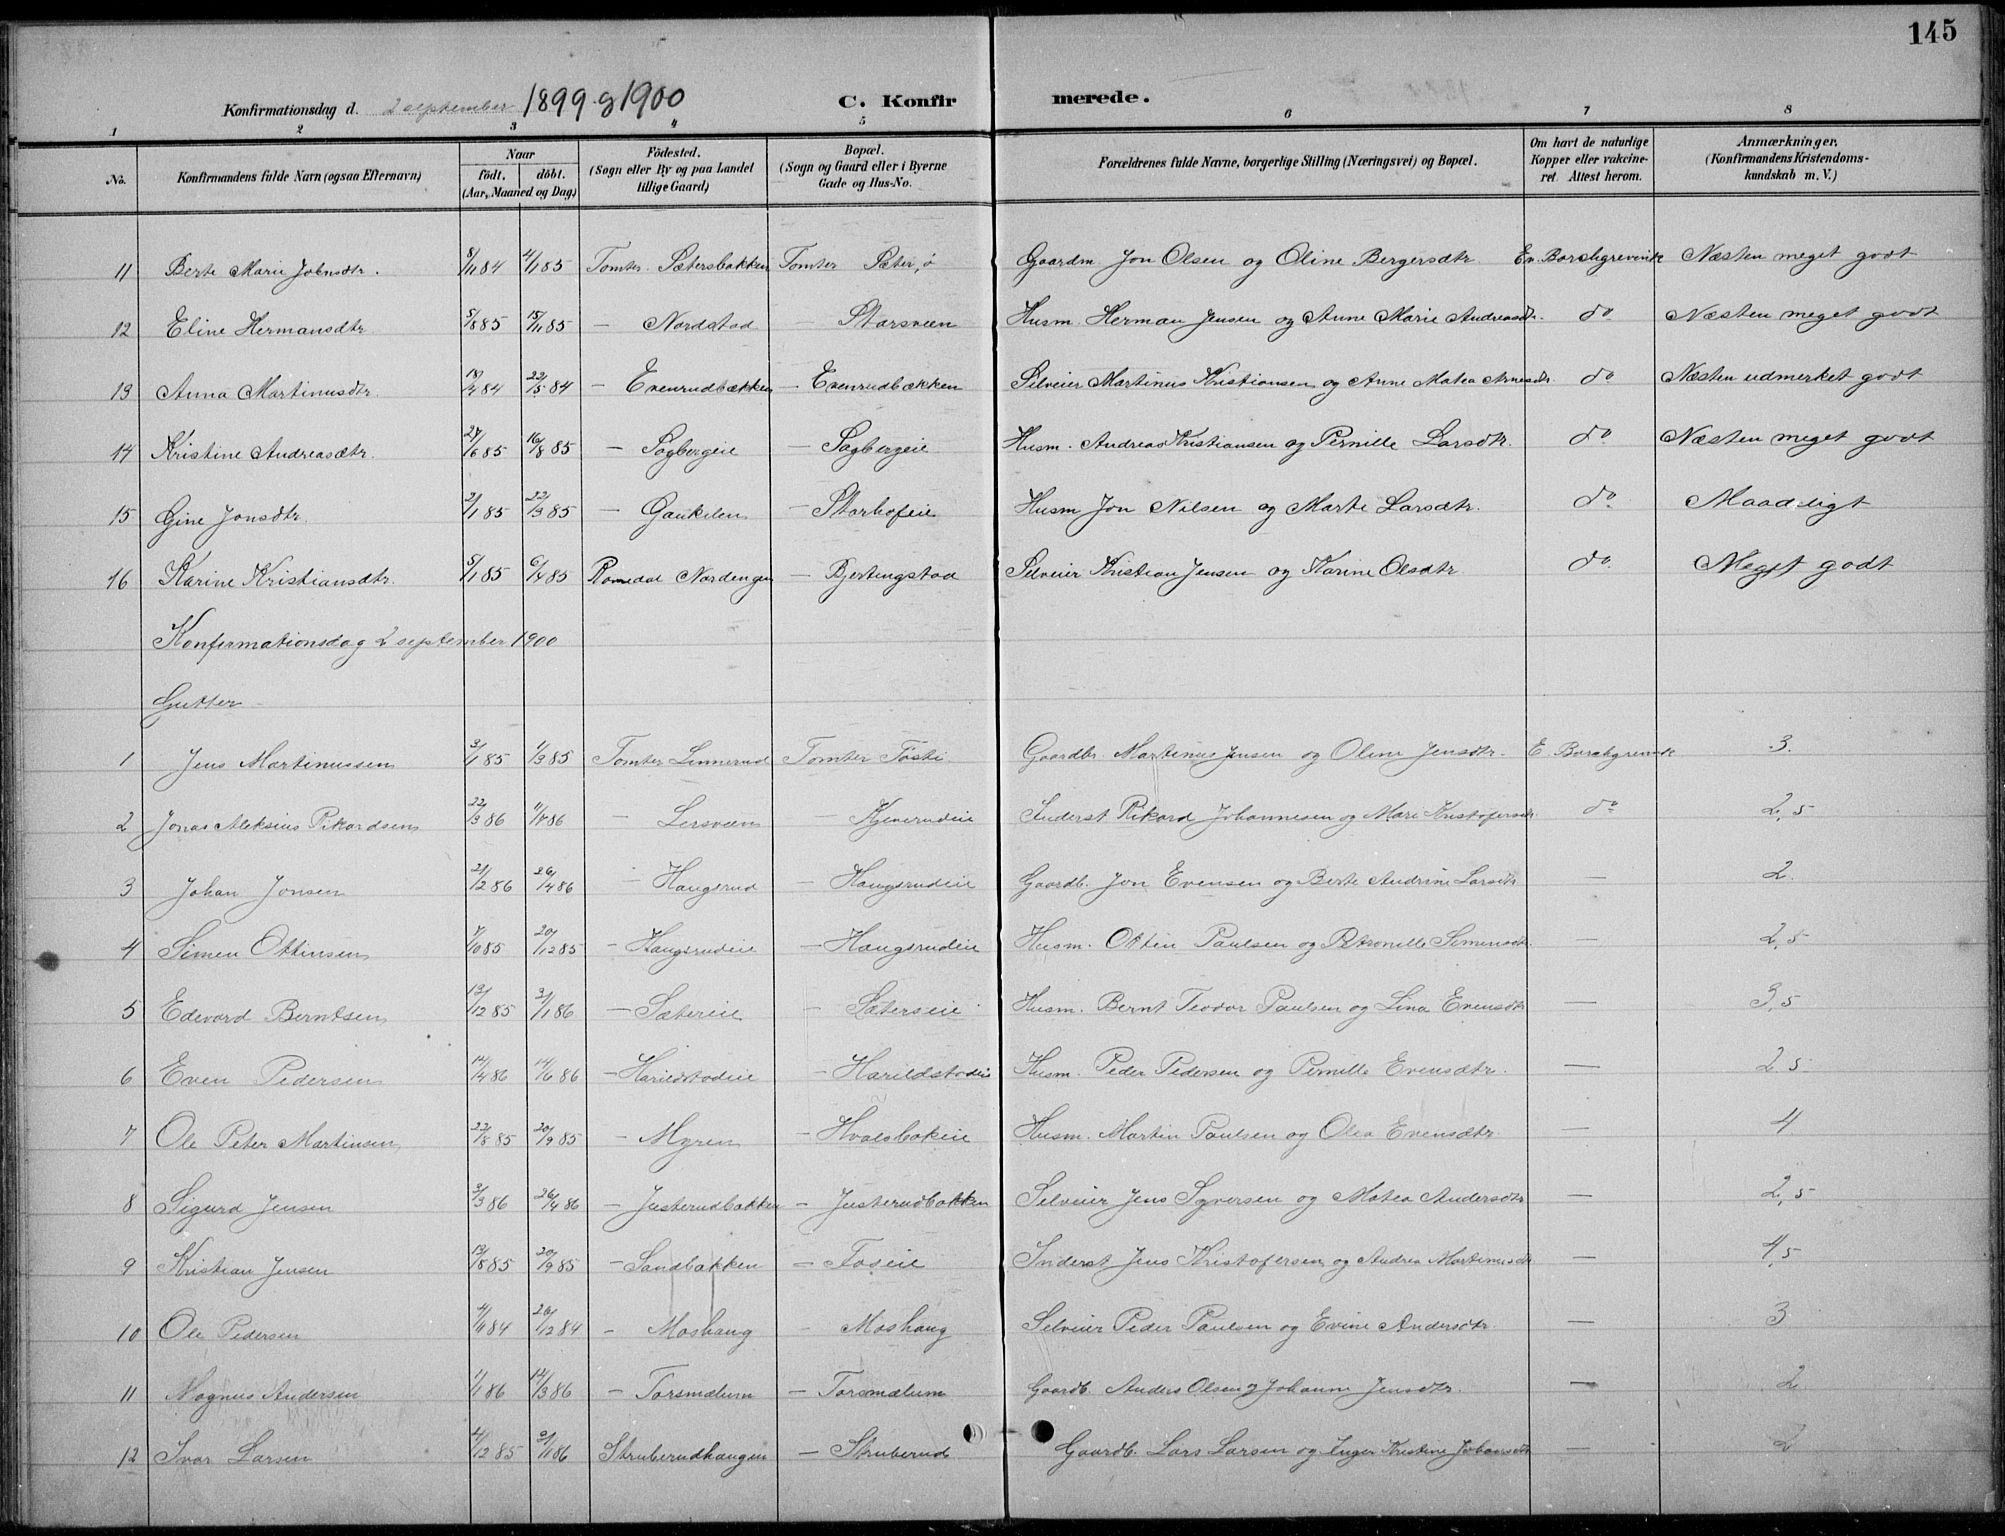 145
Konfirmationsdag d. 2 september 1899 og 1900 C. Konfirmerede.
1 2 3 4 5 6 7 8
No. Konfirmandens fulde Navn (ogsaa Efternavn) Naar født. døbt. (Aar, Maaned og Dag) Födested. (Sogn eller By og paa Landet tillige Gaard) Bopæl. (Sogn og Gaard eller i Byerne Gade og Hus-No. Forældrenes fulde Navne, borgerlige Stilling (Næringsvei) og Bopæl. Om havt de naturlige Kopper eller vakcineret. Attest herom. Anmærkninger. (Konfirmandens Kristendomskundskab m. V.)
11 Berte Marie Johnsdtr. 8/11 84 4/1 85 Tomter Sætersbakken Tomter Sæter, ø Gaardm. Jon Olsen og Oline Bergersdtr Ev. Borchgrevink Næsten meget godt
12 Eline Hermansdtr 5/8 85 15/11 85 — Nordstad Storsveen Husm. Herman Jensen og Anne Marie Andreasdtr. do Næsten meget godt
13 Anna Martinusdtr. 18/4 84 22/5 84 — Evenrudbækken — Evenrudbækken Selveier Martinus Kristiansen og Anne Matea Arnesdtr. do Næsten udmerket godt
14 Kristine Andreasdtr. 27/6 85 16/8 85 — Sogbergeie — Sogbergeie Husm. Andreas Kristiansen og Pernille Larsdtr. do Næsten meget godt
15 Gine Jonsdtr. 2/1 85 22/3 85 — Gaukilen — Storhofeie Husm Jon Nilsen og Marte Larsdtr. do Maadeligt
16 Karine Kristiansdtr. 5/1 85 6/4 85 Romedal Nordengen — Bjertingstad Selveier Kristian Jensen og Karine Olsdtr do Meget godt
Konfirmationsdag 2 september 1900
Gutter
1 Jens Martinussen 3/1 85 1/3 85 Tomter Linnerud Tomter Tösti Gaardbr. Martinus Jensen og Oline Jensdtr. E. Borchgrevink 3.
2 Jonas Aleksius Rikardsen 22/3 86 86 — Lersveen — Kjeverudeie Inderst Rikard Johannesen og Mari Kristofersdtr. do 2,5
3 Johan Jonsen 21/2 86 26/4 86 — Haugsrud — Haugsrudeie Gaardb. Jon Evensen og Berte Andrine Larsdtr — 2.
4 Simen Ottinsen 7/10 85 20/12 85 — Haugsrudeie — Haugsrudeie Husm. Ottin Paulsen og Petronille Simensdtr. — 2,5
5 Edevard Berntsen 13/12 85 31/1 86 — Sætereie — Sæterseie Husm. Bernt Teodor Paulsen og Lina Evensdtr — 3,5
6 Even Pedersen 14/4 86 14/6 86 — Harildstadeie — Harildstadeie Husm. Peder Pedersen og Pernille Evensdtr. — 2,5
7 Ole Peter Martinsen 22/8 85 20/9 85 — Myren — Hvalsbakeie Husm. Martin Paulsen og Olea Evensdtr. — 4
8 Sigurd Jensen 3/3 86 26/4 86 — Justerudbakken — Justerudbakken Selveier Jens Syversen og Matea Andersdtr — 2,5
9 Kristian Jensen 13/8 85 20/9 85 — Sandbakken — Foseie Inderst Jens Kristofersen og Andrea Martinusdtr — 4,5
10 Ole Pedersen 4/11 84 26/12 84 — Moshaug — Moshaug Selveier Peder Paulsen og Evine Andersdtr. — 3
11 Magnus Andersen 1/1 86 14/3 86 — Torsmælum — Torsmælum Gaardb. Anders Olsen og Johanne Jensdtr. — 2
12 Ivar Larsen 4/12 85 86 Skruberudhaugen — Skruberud Gaardb. Lars Larsen og Inger Kristine Johansdtr — 2